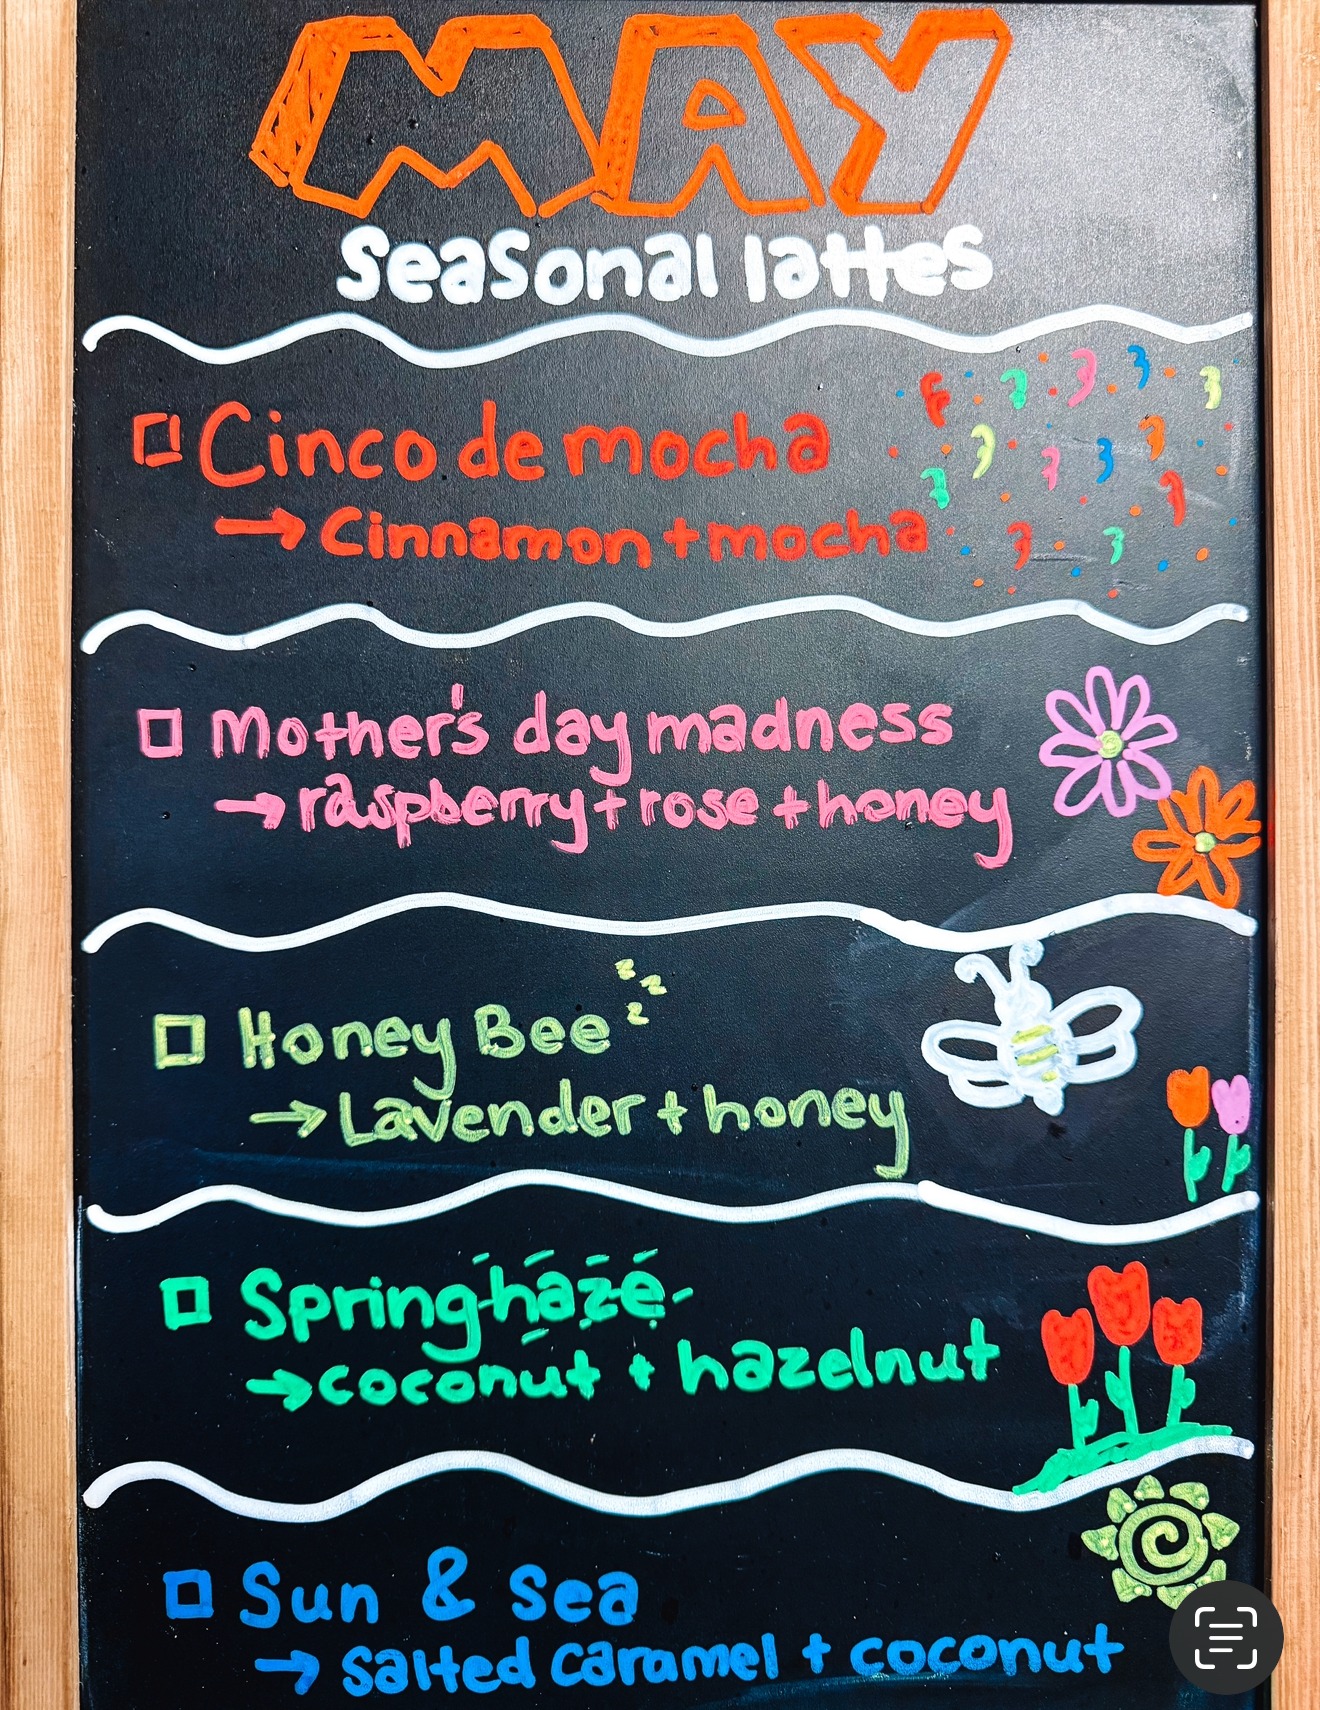 MAY
Seasonal lattes
Cinco de mocha
→ Cinnamon + mocha
Mother's day madness
→ raspberry + rose + honey
Honey Bee zzz
→ Lavender + honey
Spring haze
→ coconut + hazelnut
Sun & Sea
→ salted caramel + coconut